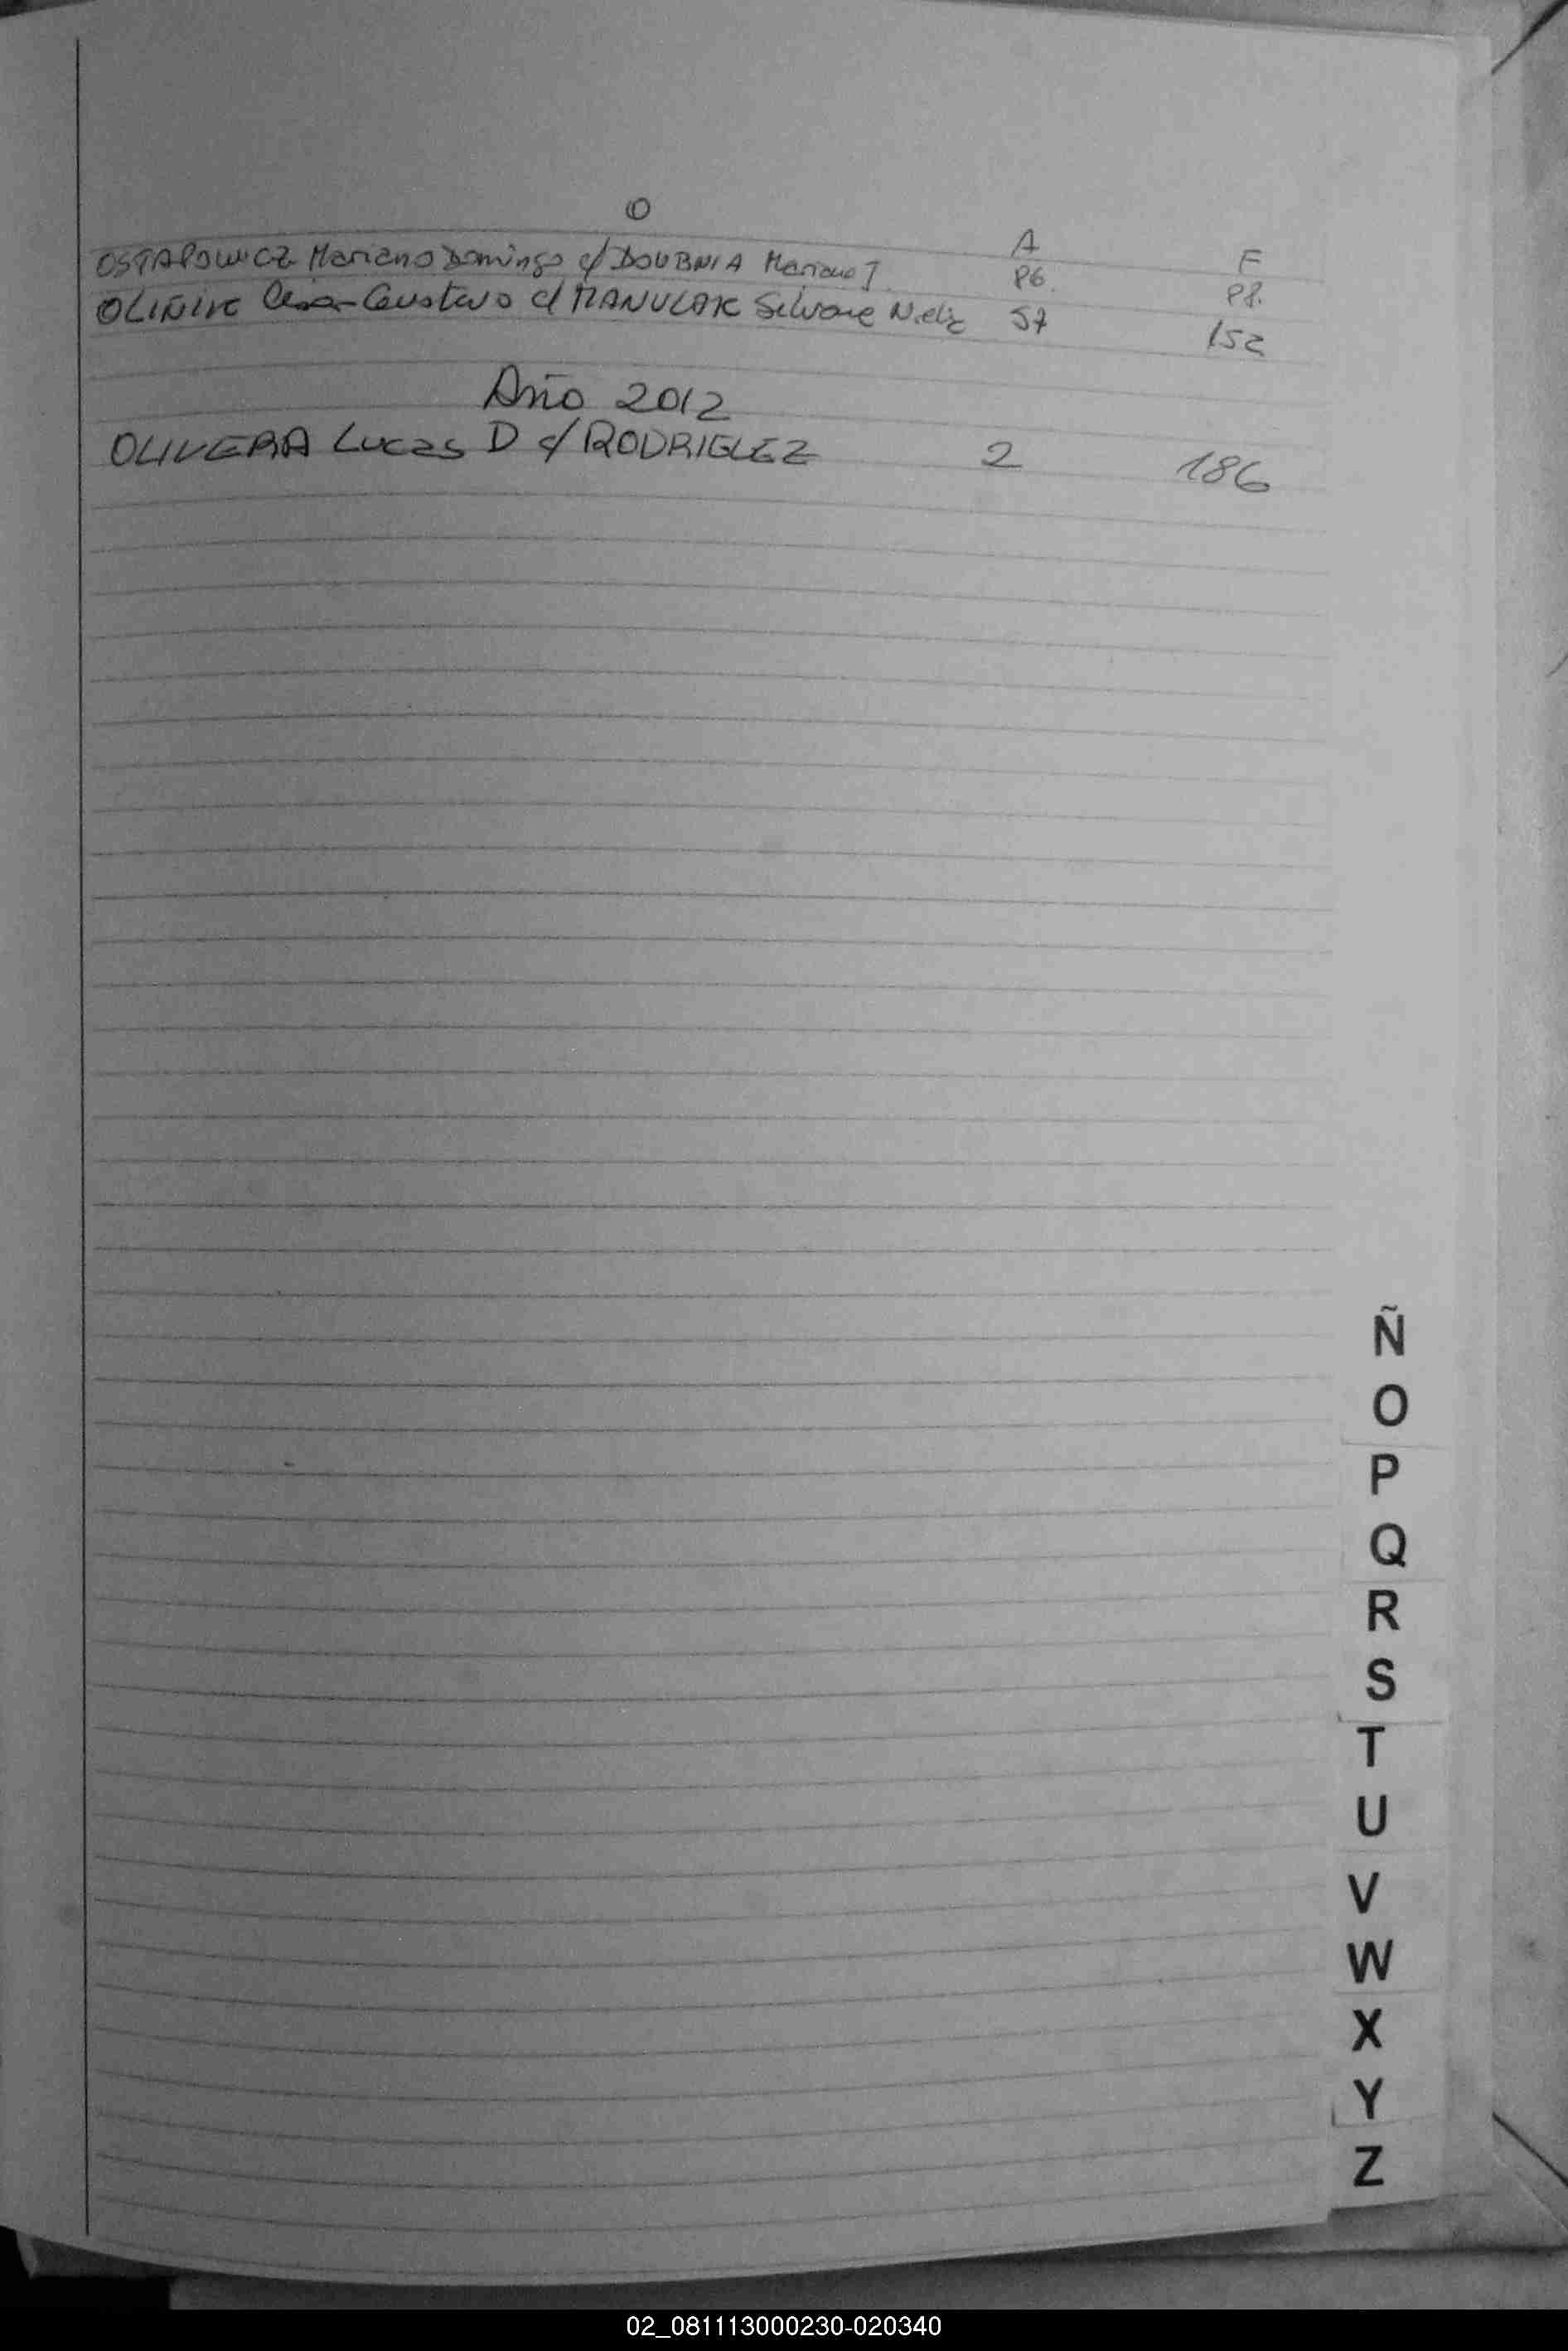 O
A F
OSTAPOWICZ Mariano Domingo c/ DOUBNIA Mariana J. 86. 98.
OLIÑIK Cesar Gustavo c/ MANULAK Silvana 57 152
Año 2012
OLIVERA Lucas D c/ RODRIGUEZ 2 186
Ñ
O
P
Q
R
S
T
U
V
W
X
Y
Z
02_081113000230-020340